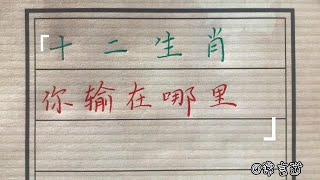 「十二生肖
你输在哪里」